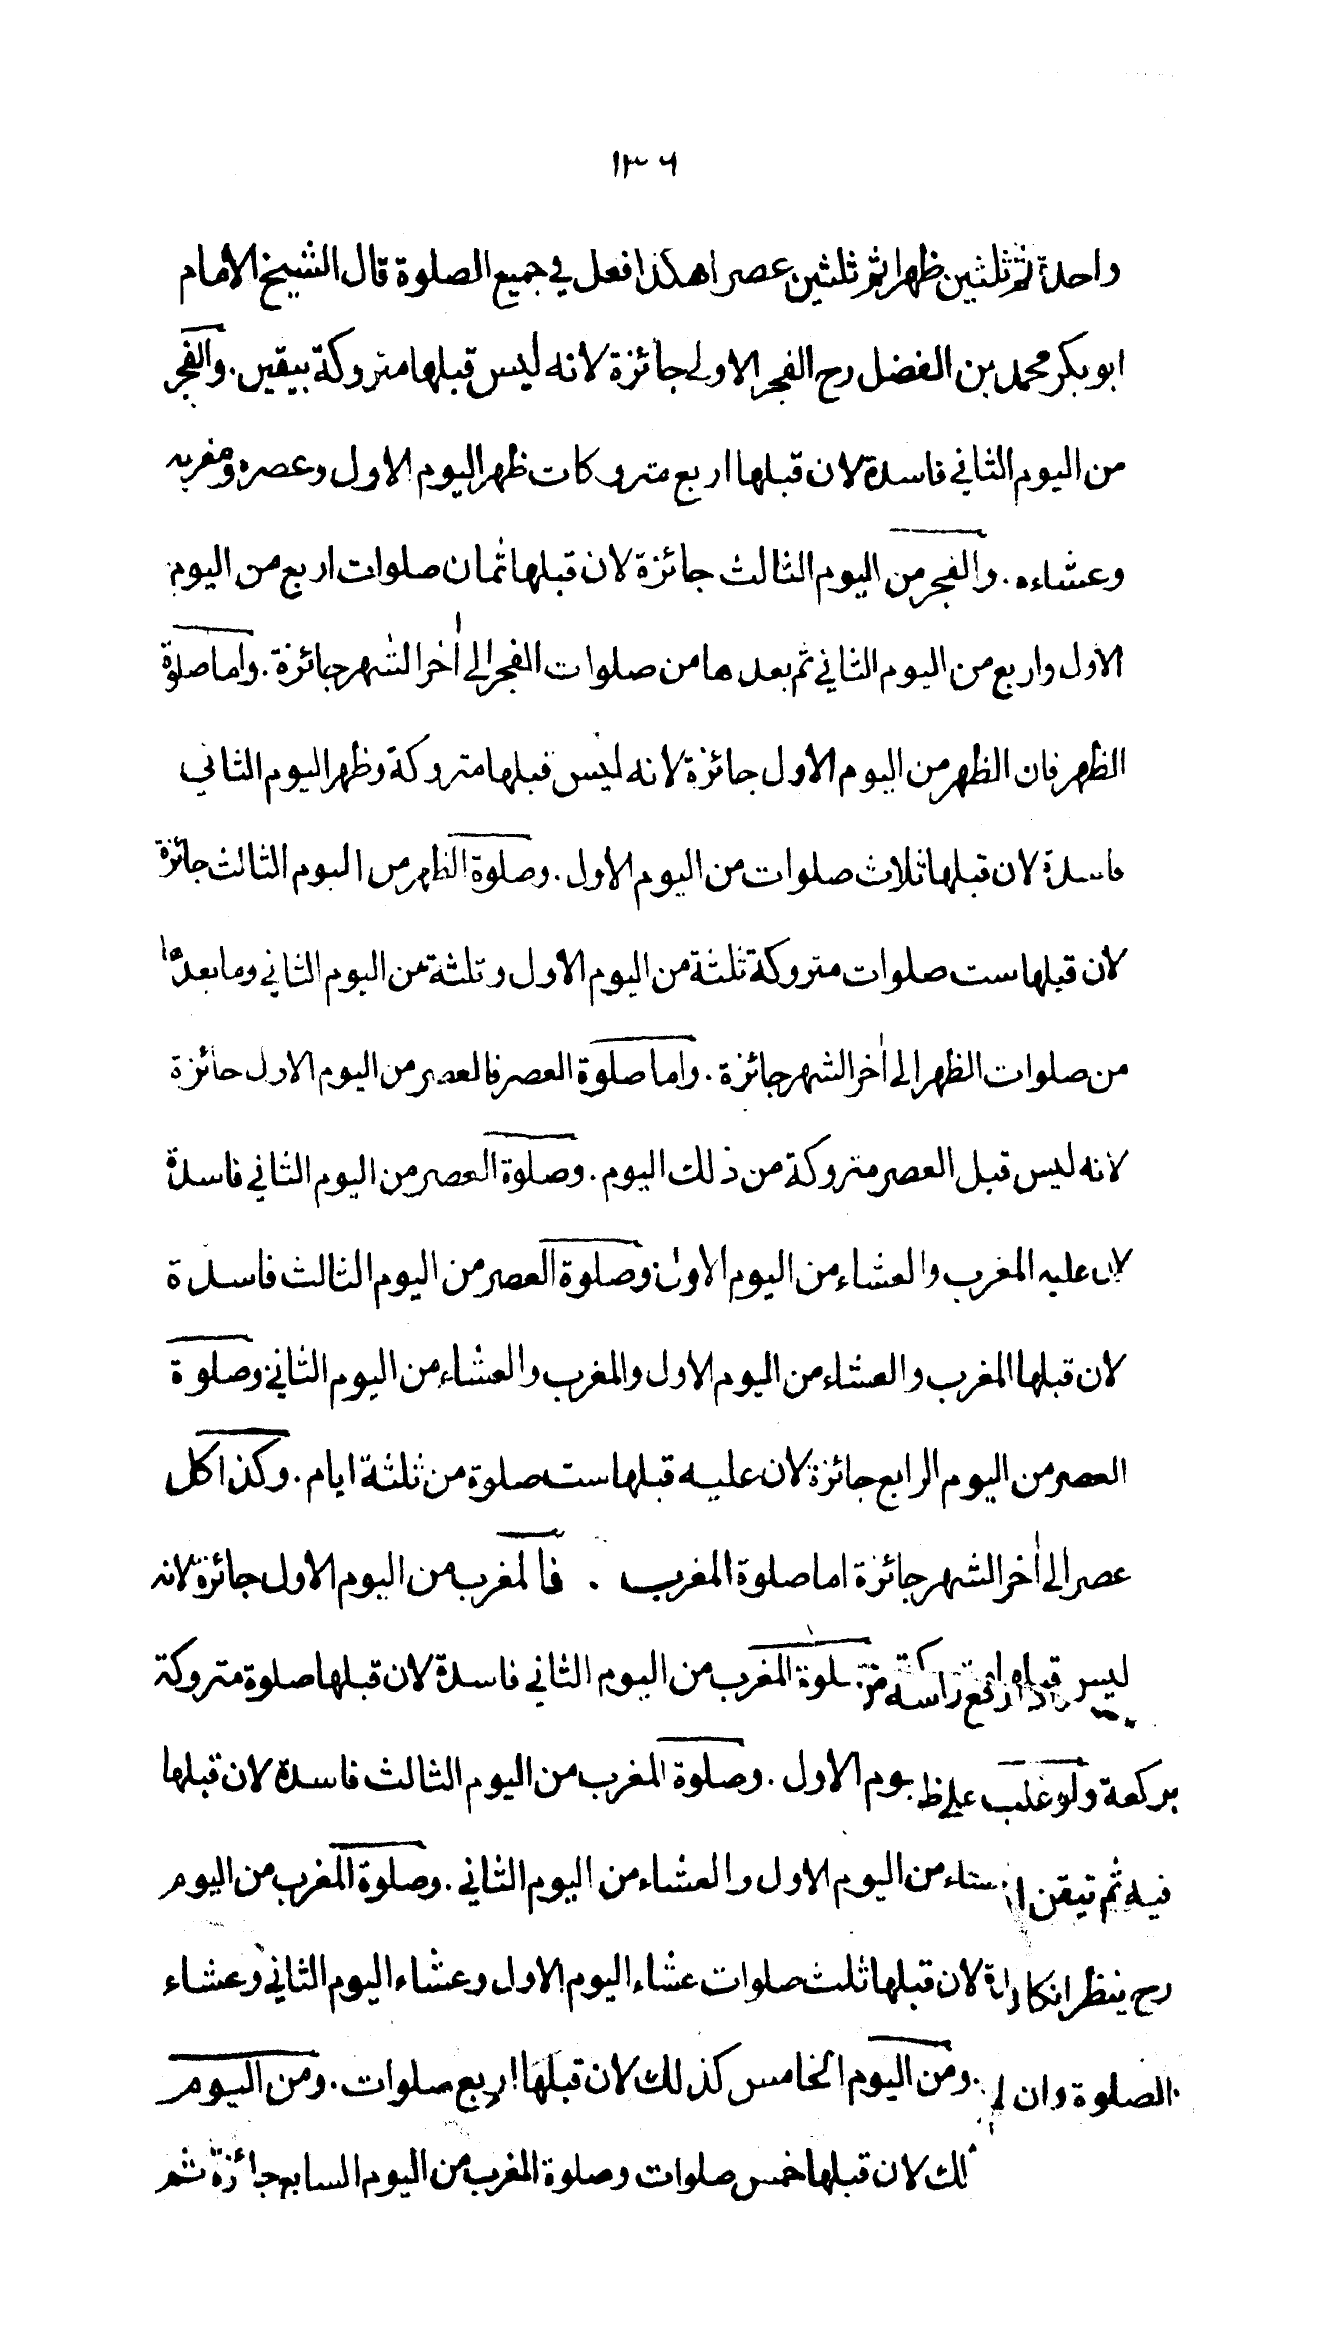 ١٣٦
واحدة ثم ثلثين ظهرا ثم ثلثين عصرا هكذا فعل في جميع الصلوة قال الشيخ الامام
ابو بكر محمد بن الفضل رح الفجر الاولى جائزة لانه ليس قبلها متروكة بيقين . والفجر
من اليوم الثاني فاسدة لان قبلها اربع متروكات ظهر اليوم الاول وعصره ومغربه
وعشاءه . والفجر من اليوم الثالث جائزة لان قبلها ثمان صلوات اربع من اليوم
الاول واربع من اليوم الثاني ثم بعدها من صلوات الفجر الى أخر الشهر جائزة . واما صلوة
الظهر فان الظهر من اليوم الاول جائزة لانه ليس قبلها متروكة وظهر اليوم الثاني
فاسدة لان قبلها ثلاث صلوات من اليوم الاول . وصلوة الظهر من اليوم الثالث جائزة
لان قبلها ست صلوات متروكة ثلثة من اليوم الاول وثلثة من اليوم الثاني وما بعدها
من صلوات الظهر الى أخر الشهر جائزة . واما صلوة العصر فالعصر من اليوم الاول جائزة
لانه ليس قبل العصر متروكة من ذلك اليوم . وصلوة العصر من اليوم الثاني فاسدة
لان عليه المغرب والعشاء من اليوم الاول وصلوة العصر من اليوم الثالث فاسدة
لان قبلها المغرب والعشاء من اليوم الاول والمغرب والعشاء من اليوم الثاني وصلوة
العصر من اليوم الرابع جائزة لان عليه قبلها ست صلوة من ثلثة ايام . وكذا كل
عصر الى أخر الشهر جائزة اما صلوة المغرب . فالمغرب من اليوم الاول جائزة لانه
ليس صلوة المغرب من اليوم الثاني فاسدة لان قبلها صلوة متروكة
بركعة ولو غلب على ظ يوم الاول . وصلوة المغرب من اليوم الثالث فاسدة لان قبلها
فيه ثم تيقن من اليوم الاول والعشاء من اليوم الثاني . وصلوة المغرب من اليوم
رح ينظر ان كا لان قبلها ثلث صلوات عشاء اليوم الاول وعشاء اليوم الثاني وعشاء
الصلوة وان . ومن اليوم الخامس كذلك لان قبلها اربع صلوات . ومن اليوم
لك لان قبلها خمس صلوات وصلوة المغرب من اليوم السابع جائزة ثم